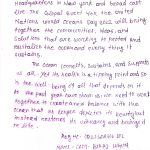 Headquarters in New York and broad cast
live. The annual event was the United
Nations World Oceans Day 2022 will bring
together the communities, ideas, and
solutions that are working to protect and
revitalize the ocean and everything it
sustains.
The ocean connects, sustains, and supports
us all. Yet its health is at a tipping point and so
is the well being of all that depends on it.
As the past years have shown us, we need to work
together to create a new balance with the
ocean that no longer depletes its bounty but
instead restores its vibrancy and brings it
life.
Reg No: